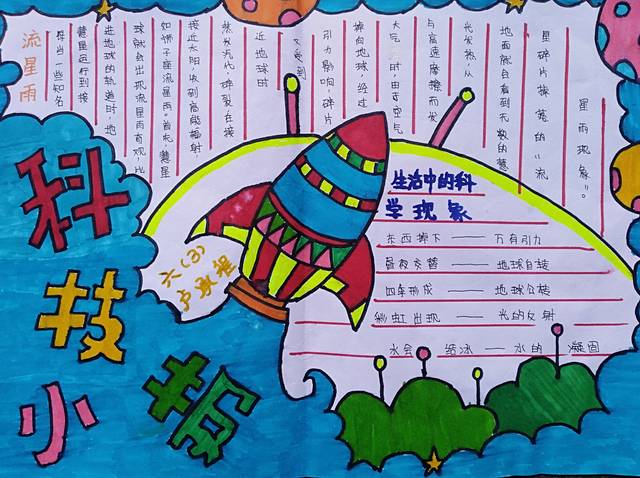 流星雨
每当一些知名
彗星运行到接
进地球的轨道时,地
球就会出现流星雨奇观,比
如狮子座流星雨。首先,彗星
接近太阳收到高能辐射,
蒸发,碎裂在接
近地球时
又受到
引力影响,碎片
掉向地球,经过
大气 时,由于空气
与高速磨擦而发
光发热,从
地面就会看到无数的彗
星碎片掉落的“流
星雨现象”。
科技小报
六(3)
生活中的科
学现象
东西掉下——万有引力
昼夜交替——地球自转
四季形成——地球公转
彩虹出现——光的反射
水会结冰——水的凝固